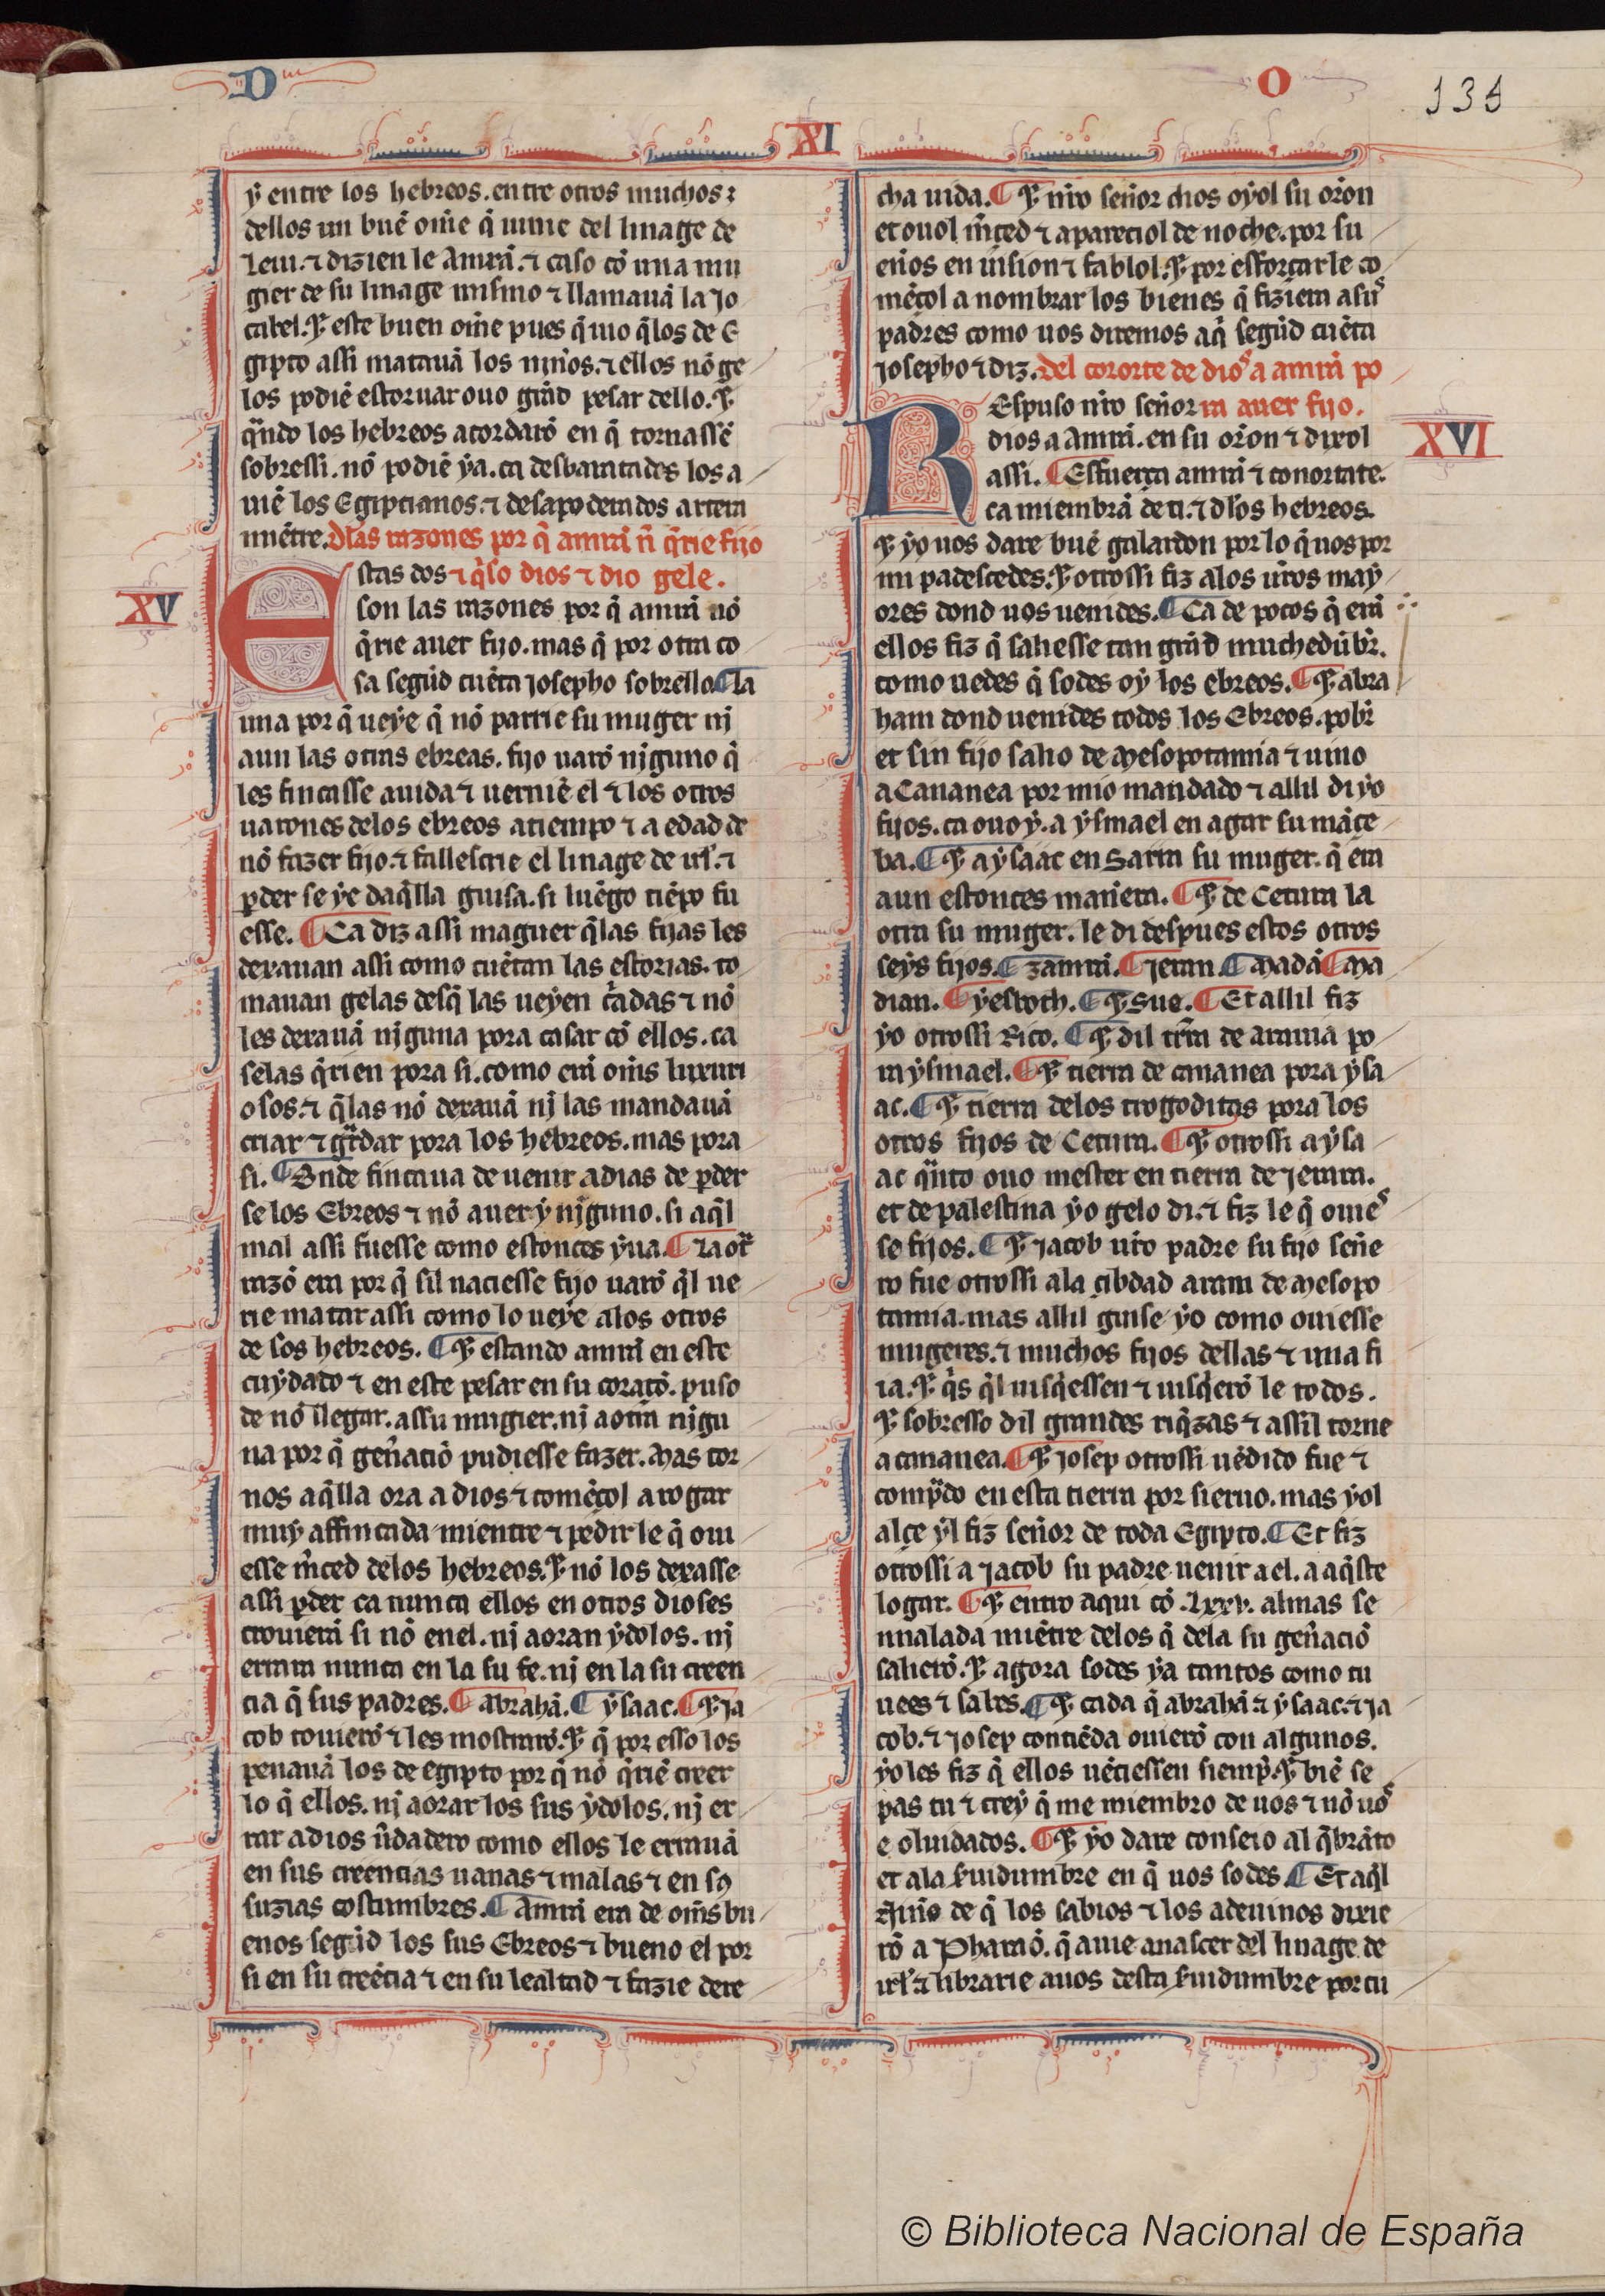 D
O
135
XI
ẏ entre los hebreos. entre otros muchos ⁊
dellos un buẽ om̃e q̃ uinie del linage de
Leui. ⁊ dizien le Amrã. ⁊ caso cõ una mu
gier de su linage mismo ⁊ llamauã la Jo
cabel. ⁊ este buen om̃e pues q̃ uio q̃los de E
gipto assi matauã los nin̄os. ⁊ ellos nõ ge
los podiẽ estoruar ouo grãd pesar dello. ⁊
q̃ndo los hebreos acordarõ en q̃ tornassẽ
sobressi. nõ podiẽ ẏa. ca desbaratados los a
uiẽ los Egiptianos. ⁊ desapoderados artera
miẽtre. Dlas razones por q̃ amrã ñ q̃rie fijo
XV
Estas dos ⁊ q̃so dios ⁊ dio gele.
son las razones por q̃ amrã nõ
q̃rie auer fijo. mas q̃ por otra co
sa segũd cuẽta Josepho sobrello. ¶ La
una por q̃ ueẏe q̃ nõ parrie su muger nj
aun las otras ebreas. fijo uarõ njguno q̃
les fincasse auida ⁊ uerniẽ el ⁊ los otros
uarones delos ebreos atiempo ⁊ a edad de
nõ fazer fijo. ⁊ fallesçrie el linage de irl̃. ⁊
ꝑder se ẏe daq̃lla guisa. si luẽgo tiẽpo fu
esse. ¶ Ca diz assi maguer q̃las fijas les
dexauan assi como cuẽtan las estorias. to
mauan gelas desq̃ las ueẏen c̃adas ⁊ nõ
les dexauã njguna pora casar cõ ellos. ca
selas q̃rien pora si. como erã om̃s luxuri
osos. ⁊ q̃las nõ dexauã nj las mandauã
criar ⁊ gr̃dar pora los hebreos. mas pora
si. ¶ Onde fincaua de uenir adias de ꝑder
se los Ebreos ⁊ nõ auer ẏ njguno. si aq̃l
mal assi fuesse como estonces ẏua. ¶ La ot̃
razõ era por q̃ sil naciesse fijo uarõ q̃l ue
rie matar assi como lo ueẏe alos otros
de los hebreos. ¶ ⁊ estando amrã en este
cuẏdado ⁊ en este pesar en su coraçõ. puso
de nõ llegar. assu mugier. nj aotra nigu
na por q̃ gen̄aciõ pudiesse fazer. Mas tor
nos aq̃lla ora a dios ⁊ comẽçol arogar
muẏ affincada mientre ⁊ pedir le q̃ oui
esse m̃ced delos hebreos. ⁊ nõ los dexasse
assi ꝑder ca nunca ellos en otros dioses
crouierã si nõ enel. nj aoran ẏdolos. nj
errara nunca en la su fe. nj en la su creen
cia q̃ sus padres. ¶ abrahã. ¶ ẏsaac. ¶ ⁊ Ja
cob touierõ ⁊ les mostrarõ. ⁊ q̃ por esso los
penauã los de egipto por q̃ nõ q̃riẽ creer
lo q̃ ellos. nj aorar los sus ẏdolos. nj er
rar adios ũdadero como ellos le errauã
en sus creencias uanas ⁊ malas ⁊ en sꝯ
suzias costumbres. ¶ Amrã era de om̃s bu
enos segũd los sus Ebreos ⁊ bueno el por
si en su creẽcia ⁊ en su lealtad ⁊ fazie dere
cha uida. ¶ ⁊ nr̃o sen̄or dios oẏol su or̃on
et ouol m̃ced ⁊ apareciol de noche. por su
en̄os en uision ⁊ fablol. ⁊ por esforçarle co
mẽçol a nombrar los bienes q̃ fiziera asus
padres como uos diremos aq̃ segũd cuẽta
Josepho ⁊ diz. Del conorte de dios a amrã po
XVI
REspuso nr̃o sen̄or ra auer fijo.
dios a Amrã. en su or̃on ⁊ dixol
assi. ¶ Esfuerça amrã ⁊ conortate.
ca miembrã de ti. ⁊ dlos hebreos.
⁊ ẏo uos dare buẽ galardon por lo q̃ uos por
mi padescedes. ⁊ otrossi fiz alos ur̃os maẏ
ores dond uos uenides. ¶ Ca de pocos q̃ erã
ellos fiz q̃ saliesse tan grãd muchedũbr̃.
como uedes q̃ sodes oẏ los ebreos. ¶ ⁊ abra
ham dond uenides todos los Ebreos. pobr̃
et sin fijo salio de Mesopotamia ⁊ uino
a Cananea por mio mandado ⁊ allil di ẏo
fijos. ca ouo ẏ. a ẏsmael en agar su mãçe
ba. ¶ ⁊ aẏsaac en Sarra su muger. q̃ era
aun estonces man̄era. ¶ ⁊ de Cetura la
otra su muger. le di despues estos otros
seẏs fijos. ¶ Zamrã. ¶ Jetan. ¶ Madã ¶ Ma
dian. ¶ ẏesboch. ¶ ⁊ Sue. ¶ Et allil fiz
ẏo otrossi Rico. ¶ ⁊ dil tr̃ra de arauia po
raẏsmael. ¶ ⁊ tierra de cananea pora ẏsa
ac. ¶ ⁊ tierra delos trogoditas pora los
otros fijos de Cetura. ¶ ⁊ otrossi aẏsa
ac q̃nto ouo mester en tierra de Jerara.
et de palestina ẏo gelo di. ⁊ fiz le q̃ ouies
se fijos. ¶ ⁊ Jacob ur̃o padre su fijo sen̄e
ro fue otrossi ala çibdad aram de Mesopo
tamia. mas allil guise ẏo como ouiesse
mugeres. ⁊ muchos fijos dellas ⁊ una fi
ia. ⁊ q̃s q̃l uisq̃essen ⁊ uisq̃erõ le todos.
⁊ sobresso dil grandes riq̃zas ⁊ assil torne
a cananea. ¶ ⁊ Josep otrossi uẽdido fue ⁊
comp̃do en esta tierra por sieruo. mas ẏol
alçe ẏl fiz sen̄or de toda Egipto. ¶ Et fiz
otrossi a Jacob su padre uenir a el. a aq̃ste
logar. ¶ ⁊ entro aqui cõ .Lxxv. almas se
nnalada miẽtre delos q̃ dela su gen̄aciõ
salierõ. ⁊ agora sodes ẏa tantos como tu
uees ⁊ sabes. ¶ ⁊ cada q̃ abrahã. ⁊ ẏsaac. ⁊ Ja
cob. ⁊ Josep contiẽda ouierõ con algunos.
ẏo les fiz q̃ ellos uẽciessen siemp̃. ⁊ biẽ se
pas tu ⁊ creẏ q̃ me miembro de uos ⁊ nõ uos
e oluidados. ¶ ⁊ ẏo dare conseio al q̃brãto
et ala s̃uidumbre en q̃ uos sodes. ¶ Et aq̃l
de q̃ los sabios ⁊ los adeuinos dixie
rõ a Pharaõ. q̃ auie anascer del linage de
irl̃. ⁊ librarie auos desta s̃uidumbre por tu
© Biblioteca Nacional de España